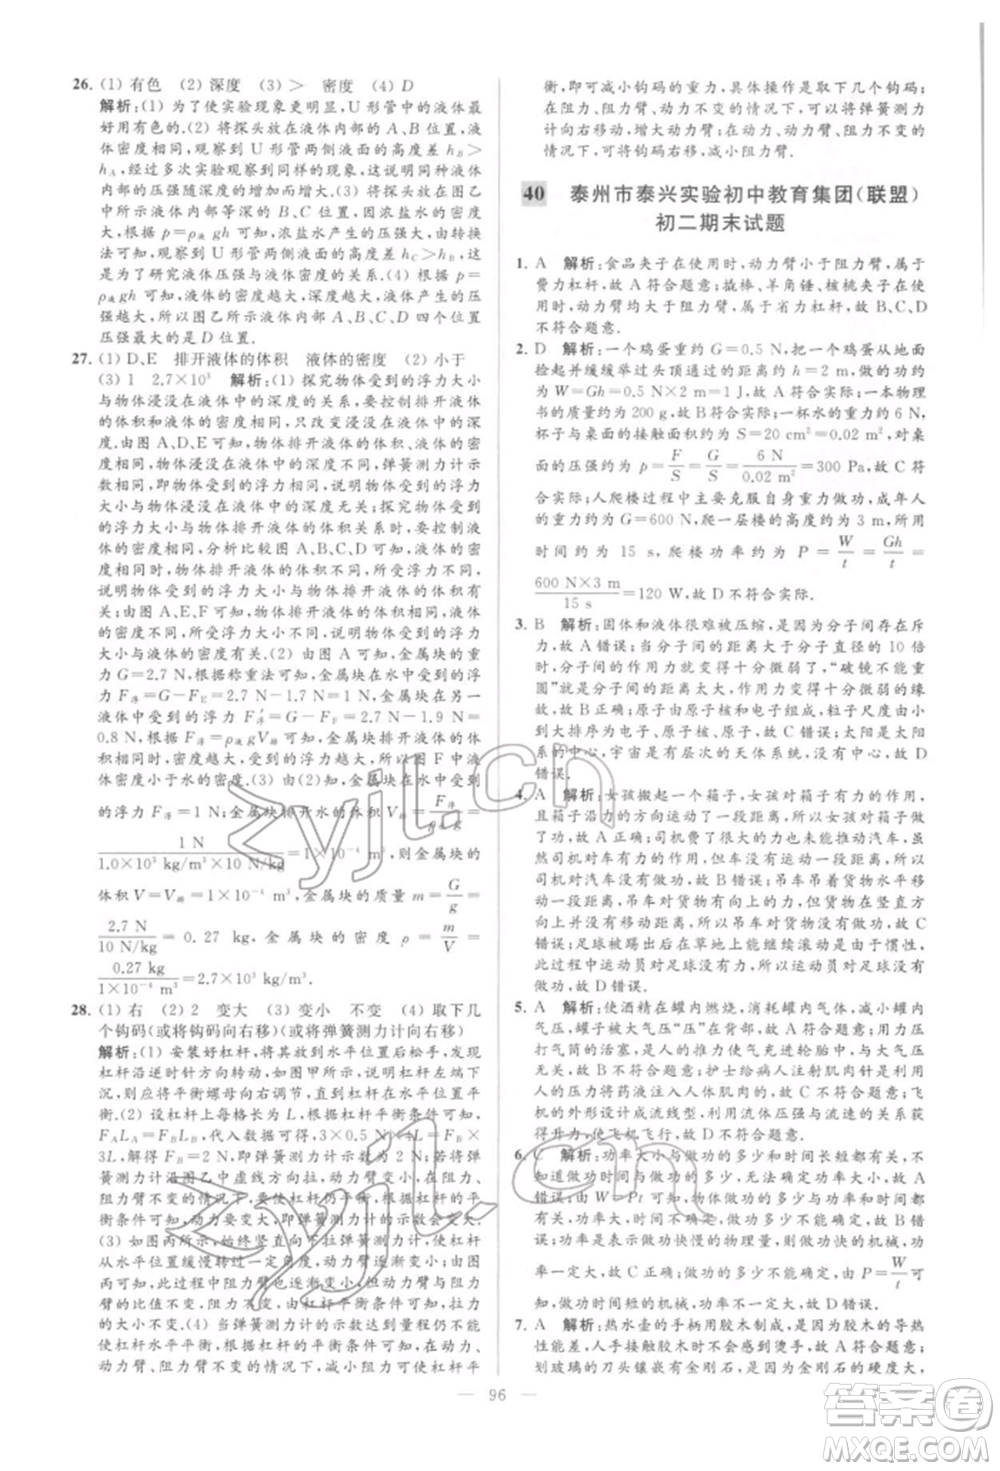 26. (1) 有色 (2) 深度 (3) > 密度 (4) D
解析:(1) 为了使实验现象更明显,U 形管中的液体最
好用有色的.(2) 将探头放在液体内部的 A、B 位置,液
体密度相同,观察到 U 形管两侧液面的高度差 hB>
hA,经过多次实验观察到了同样的现象,说明同种液体
的压强随深度的增加而增大.(3) 将探头放在图乙、图
丙中的 B、C 位置,深度相同,浓盐水的密度大,根据公
式 p=ρ液gh 可知,浓盐水产生的压强大,探头在浓盐
水中时 U 形管两侧液面的高度差 hC>hB,此现象可说
明液体压强与液体密度的关系.(4) 根据 p=
ρ液gh 可知,液体的密度越大,液体产生的压
强越大,所以图乙中液体内部 A、B、C、D 四个位置压
强最大的是 D 位置.
27. (1) D、E 排开液体的体积 液体的密度 (2) 小于
(3) 1 2.7×10³ 解析:(1) 探究物体受到的浮力大小
与物体浸没在液体中的深度的关系,要控制排开液体
的体积和液体的密度相同,只改变浸没在液体中的深
度.由图 A、D、E 可知,物体排开液体的体积、液体的密
度相同,物体浸没在液体中的深度不同,弹簧测力计示
数相同,即物体受到的浮力大小相同,说明物体受到的
浮力大小与物体浸没在液体中的深度无关;探究物体受到
的浮力大小与物体排开液体的体积关系时,要控制液体的
密度相同,分析比较图 A、C、D 可知,液体的密度相
同,物体排开液体的体积不同,物体受到的浮力不同,
说明物体受到的浮力大小与物体排开液体的体积有
关;由图 A、E、F 可知,物体排开液体的体积相同,液体
的密度不同,物体受到的浮力不同,说明物体受到的浮
力大小与液体的密度有关.(2) 由图 A 可知,金属块的重
力 G=2.7 N,根据称重法可知,金属块在水中受到的
浮力 F浮=G-FE=2.7 N-1.7 N=1 N,金属块在另一
液体中受到的浮力 F′浮=G-FF=2.7 N-1.9 N=
0.8 N,根据 F浮=ρ液gV排可知,所以图 F 中液体的密
度小于水的密度.(3) 由以上分析可知,金属块在水中受到
的浮力 F浮=1 N,金属块排开水的体积 V排=F浮/ρ水g=
1 N/(1.0×10³ kg/m³×10 N/kg)=1×10⁻⁴ m³,则金属块的
体积 V=V排=1×10⁻⁴ m³,金属块的质量 m=G/g=
2.7 N/(10 N/kg)=0.27 kg,金属块的密度 ρ=m/V=
0.27 kg/(1×10⁻⁴ m³)=2.7×10³ kg/m³.
28. (1) 右 (2) 2 变大 (3) 变小 不变 (4) 取下几
个钩码(或将钩码向右移)(或将弹簧测力计向右移)
解析:(1) 安装好杠杆,将其放到水平位置后松手,发现
杠杆沿逆时针方向转动,如图甲所示,说明杠杆左端下
沉,应将平衡螺母向右调节,直到杠杆在水平位置
平衡.(2) 设杠杆上每格长为 L,根据杠杆平衡条件
FALA=FBLB,代入数据可得,3×0.5 N×4L=FB×
3L,解得 FB=2 N,即弹簧测力计示数为 2 N;若将弹簧
测力计沿图乙中虚线方向拉,动力臂变小,阻力、阻力
臂不变的情况下,要使杠杆仍平衡,根据杠杆的平衡
条件可知,动力要变大,即弹簧测力计的示数将变大.
(3) 如图丙所示,始终竖直向上拉杠杆,在杠杆从水平
位置缓慢转过一定角度,动力臂、阻力臂都变小,由图
丙可知,此过程中阻力臂变小,但动力臂与阻力臂
的比值不变,阻力不变,根据杠杆平衡条件可知,拉力
大小不变.(4) 当弹簧测力计的示数超过量程,在阻力
臂、动力臂不变的情况下,减小阻力可使杠杆平
衡,即可以减小钩码的重力,具体操作是取下几个钩码;
在阻力、阻力臂、动力不变的情况下,可以将弹簧测力
计向右移动,增大动力臂;在动力、动力臂、阻力不变的
情况下,可以将钩码右移,减小阻力臂.
40 泰州市泰兴实验初中教育集团(联盟)
初二期末试题
1. A 解析:食品夹子在使用时,动力臂小于阻力臂,属于
费力杠杆,故 A 符合题意;撬棒、羊角锤、核桃夹子在使
用时,动力臂均大于阻力臂,属于省力杠杆,故 B、C、D
不符合题意.
2. D 解析:一个鸡蛋重约 G=0.5 N,把一个鸡蛋从地面
捡起并缓缓举过头顶通过的距离约 h=2 m,做的功约
为 W=Gh=0.5 N×2 m=1 J,故 A 符合实际;一本物理
书的质量约为 200 g,故 B 符合实际;一杯水的重力约 6 N,
杯子与桌面的接触面积约为 S=20 cm²=0.02 m²,对桌
面的压强约为 p=F/S=G/S=6 N/0.02 m²=300 Pa,故 C 符
合实际;人爬楼时主要克服自身重力做功,成年人
的重力约为 G=600 N,爬一层楼的高度约为 3 m,所用
时间约为 15 s,爬楼功率约为 P=W/t=Gh/t=
600 N×3 m/15 s=120 W,故 D 不符合实际.
3. B 解析:固体和液体很难被压缩,是因为分子间存在斥
力,故 A 错误;当分子间的距离大于分子直径的 10 倍
时,分子间的作用力就变得十分微弱了,“破镜不能重
圆”是因为分子间的距离太大,分子间作用力微弱的缘
故,故 B 正确;原子由原子核和电子构成,粒子尺度从
小到大排序为电子、原子核、原子,故 C 错误;太阳是太阳系
的中心,宇宙是有层次的天体系统,没有中心,故 D
错误.
4. A 解析:女孩搬起一个箱子,女孩对箱子有力的作用,
且箱子沿力的方向运动了一段距离,所以女孩对箱子
做了功,故 A 正确;司机费了很大的力也未能推动汽车,
司机对汽车有力的作用,但汽车没有在力的方向上
运动一段距离,所以司机没有做功,故 B 错误;吊车吊着货物
使其沿水平方向匀速移动一段距离,但货物在竖直方
向上没有移动距离,所以吊车对货物没有做功,故 C
错误;足球被踢出后在草地上能滚动是由于惯性,
此过程中运动员对足球没有力的作用,所以运动员对足球没有
做功,故 D 错误.
5. A 解析:使酒精在罐内燃烧,消耗罐内气体,罐内气压
变小,罐子被大气压“压”在背部,故 A 符合题意;向下压
打气筒的活塞,是人的力使气充进轮胎中,没有利用大
气压,故 B 不符合题意;护士给病人注射肌肉针时,是利用
压力将药液注入人体肌肉的,故 C 不符合题意;飞
机的外形设计成流线型,利用流体压强与流速的关系获
得升力,使飞机飞行,故 D 不符合题意.
6. C 解析:功率大小与做功的多少和时间都有关,不
知道做功时间的情况下,功率大的机械做功不一定多,故 A
错误;由 W=Pt 可知,做功的多少与功率和时间都
有关,功率大,不知道时间,做功多少不能确定,故 B 错误;
功率是表示做功快慢的物理量,做功快的机械,功率一
定大,故 C 正确;做功的多少和时间都影响功率,由 P=W/t可
知,做功时间短的机械,功率不一定大,故 D 错误.
7. A 解析:热水壶的手柄用胶木制成,是由于胶木的导热性
差,人手接触胶木时,不会感觉太热,故 A 正确;
划玻璃的刀头镶嵌有金刚石,是因为金刚石的硬度大,
96
zyjl.cn
zyjl.cn
答案圈
MXQE.COM